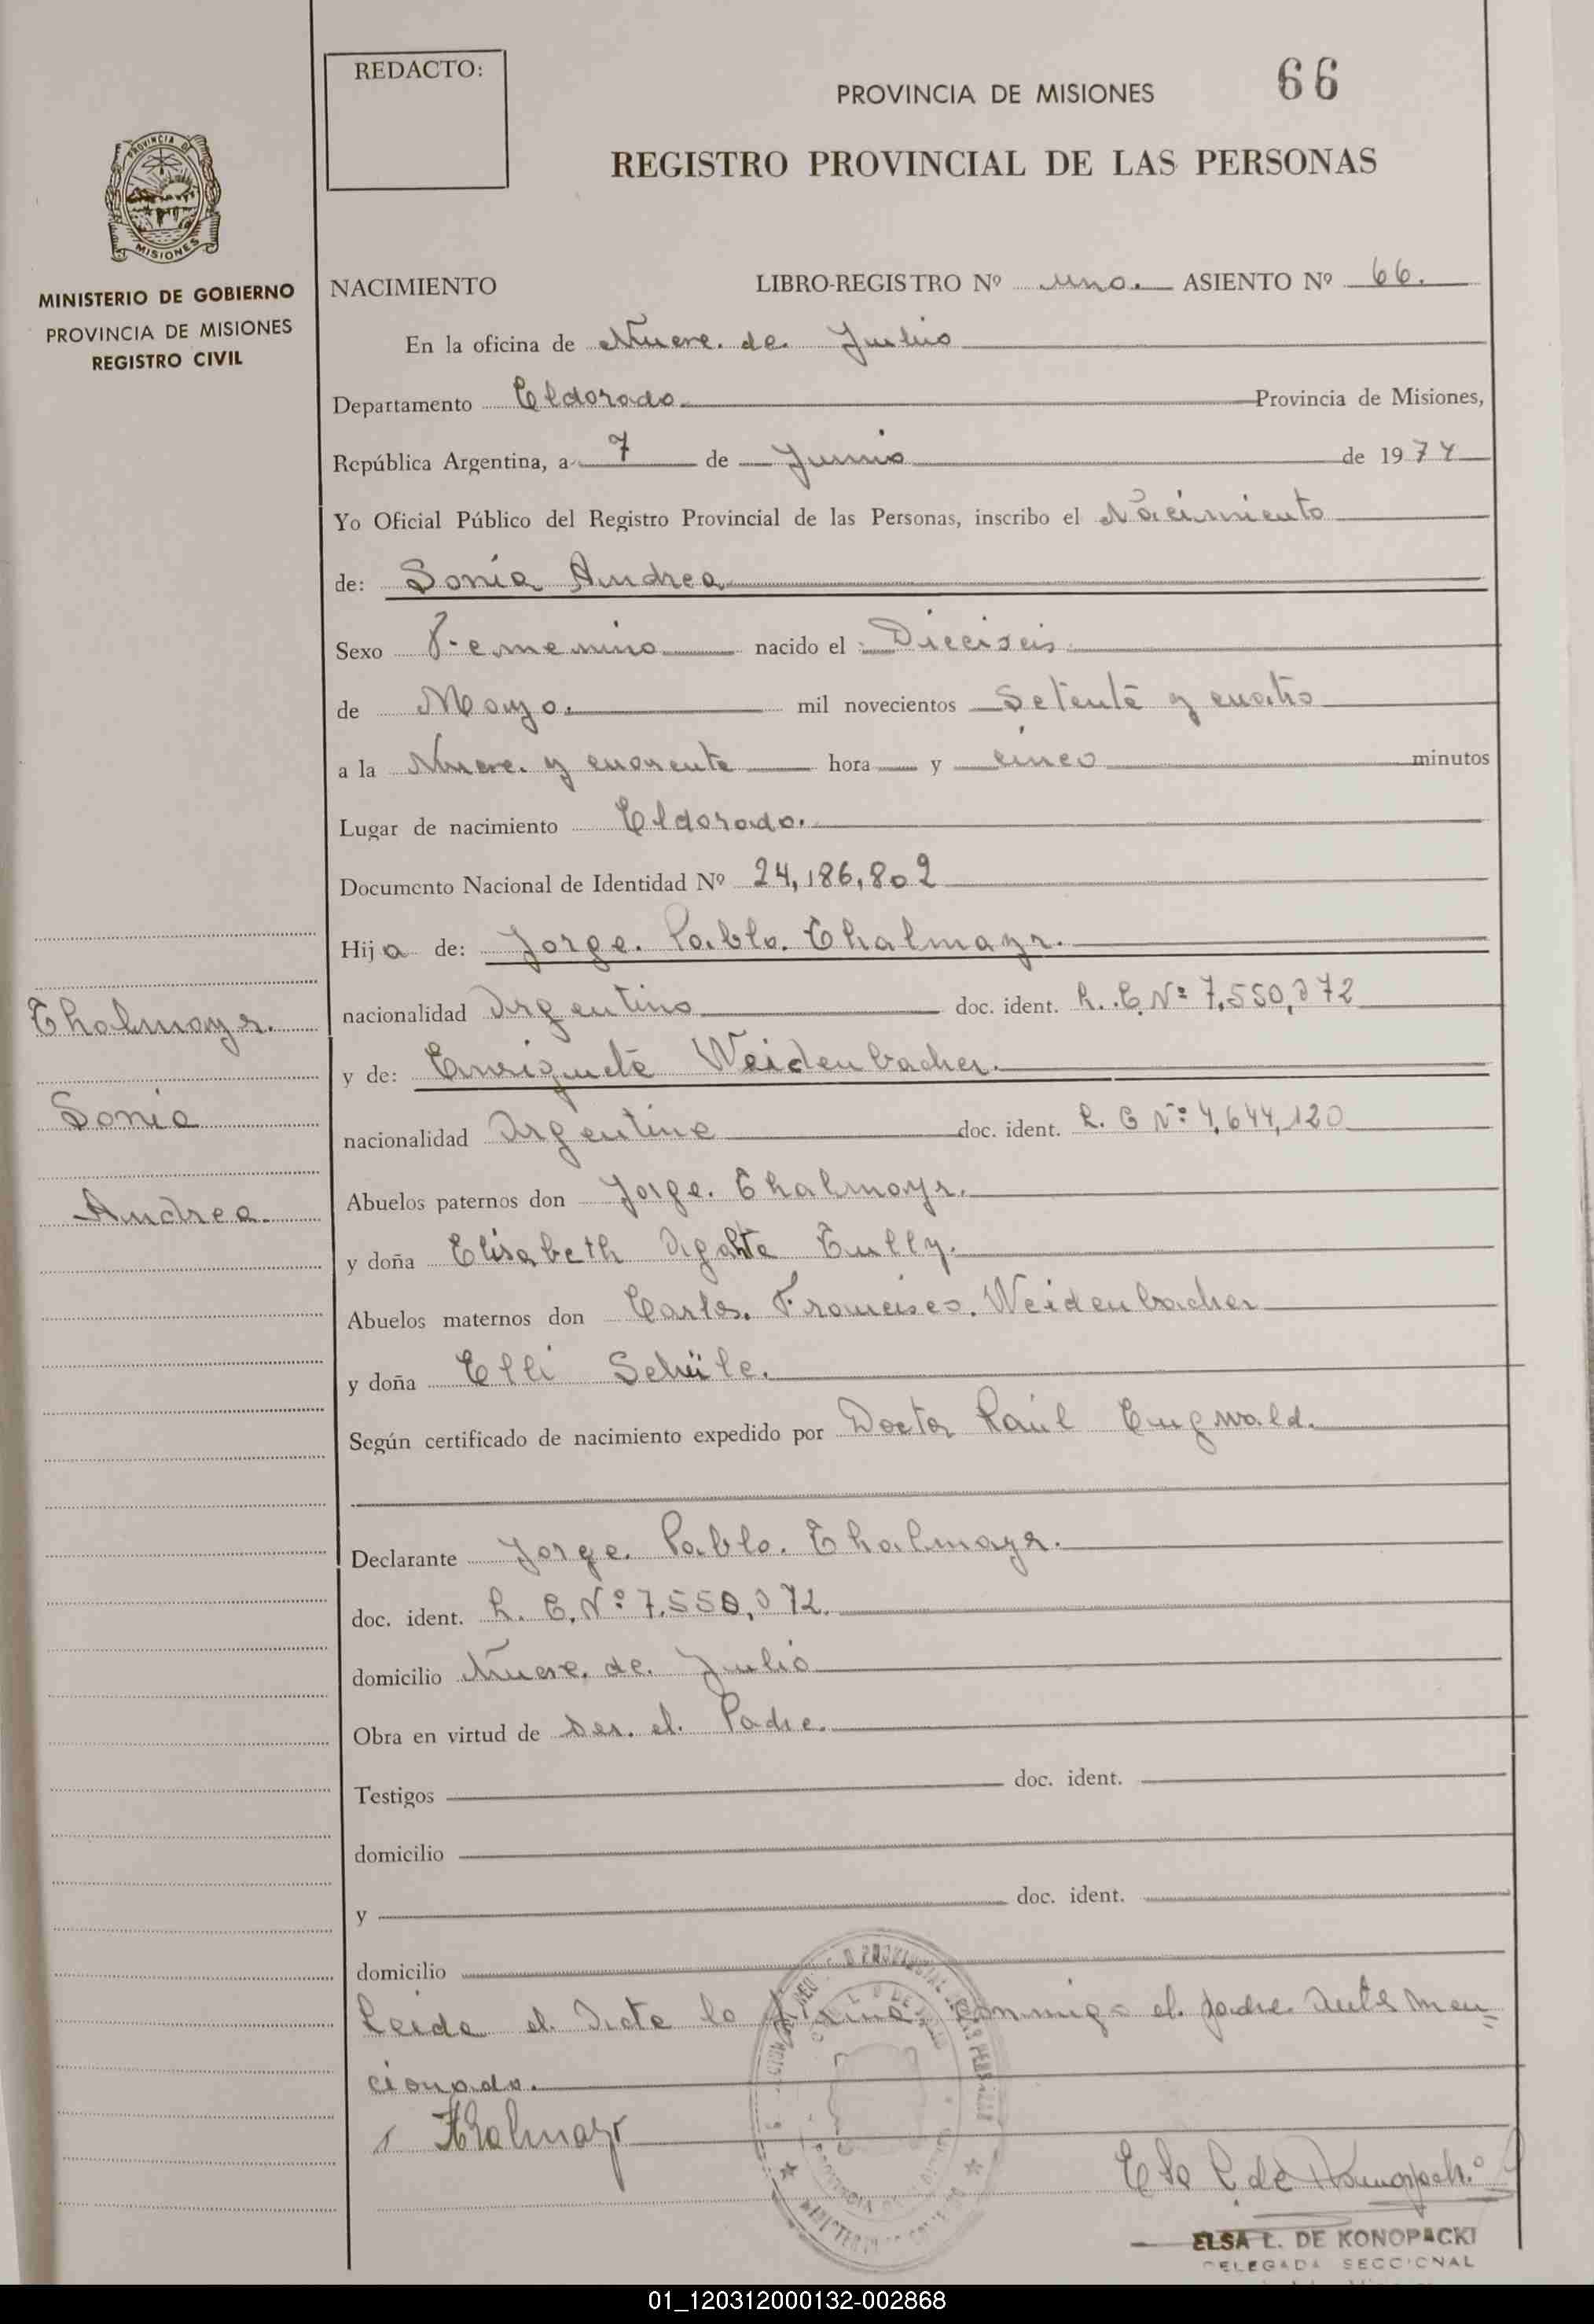 REDACTO:
PROVINCIA DE MISIONES 66
REGISTRO PROVINCIAL DE LAS PERSONAS
PROVINCIA DE
MISIONES
MINISTERIO DE GOBIERNO
PROVINCIA DE MISIONES
REGISTRO CIVIL
NACIMIENTO LIBRO-REGISTRO Nº uno. ASIENTO Nº 66.
En la oficina de Nueve. de. Julio
Departamento Eldorado Provincia de Misiones,
República Argentina, a 7 de Junio de 1974
Yo Oficial Público del Registro Provincial de las Personas, inscribo el Nacimiento
de: Sonia Andrea
Sexo Femenino nacido el Dieciseis
de Mayo. mil novecientos Setenta y cuatro
a la Nueve. y cuarenta hora y cinco minutos
Lugar de nacimiento Eldorado.
Documento Nacional de Identidad Nº 24,186,802
Hija de: Jorge. Pablo. Thalmayr.
nacionalidad Argentino doc. ident. L. E. Nº 7,550,072
y de: Enriqueta Weidenbacher.
nacionalidad Argentina doc. ident. L. C Nº 4,644,120
Abuelos paternos don Jorge. Thalmayr.
y doña Elisabeth Agahta Tully.
Abuelos maternos don Carlos. Francisco. Weidenbacher
y doña Elli Schüle.
Según certificado de nacimiento expedido por Doctor Raúl Engwald.
Declarante Jorge. Pablo. Thalmayr.
doc. ident. L. E. Nº 7.550,072.
domicilio Nueve. de. Julio
Obra en virtud de ser. el. Padre.
Testigos doc. ident.
domicilio
y doc. ident.
domicilio
Leida el Acta la firma conmigo el padre Ante men
cionado.
Thalmayr
ELSA L. DE KONOPACKI
DELEGADA SECCIONAL
Thalmayr.
Sonia
Andrea.
01_120312000132-002868